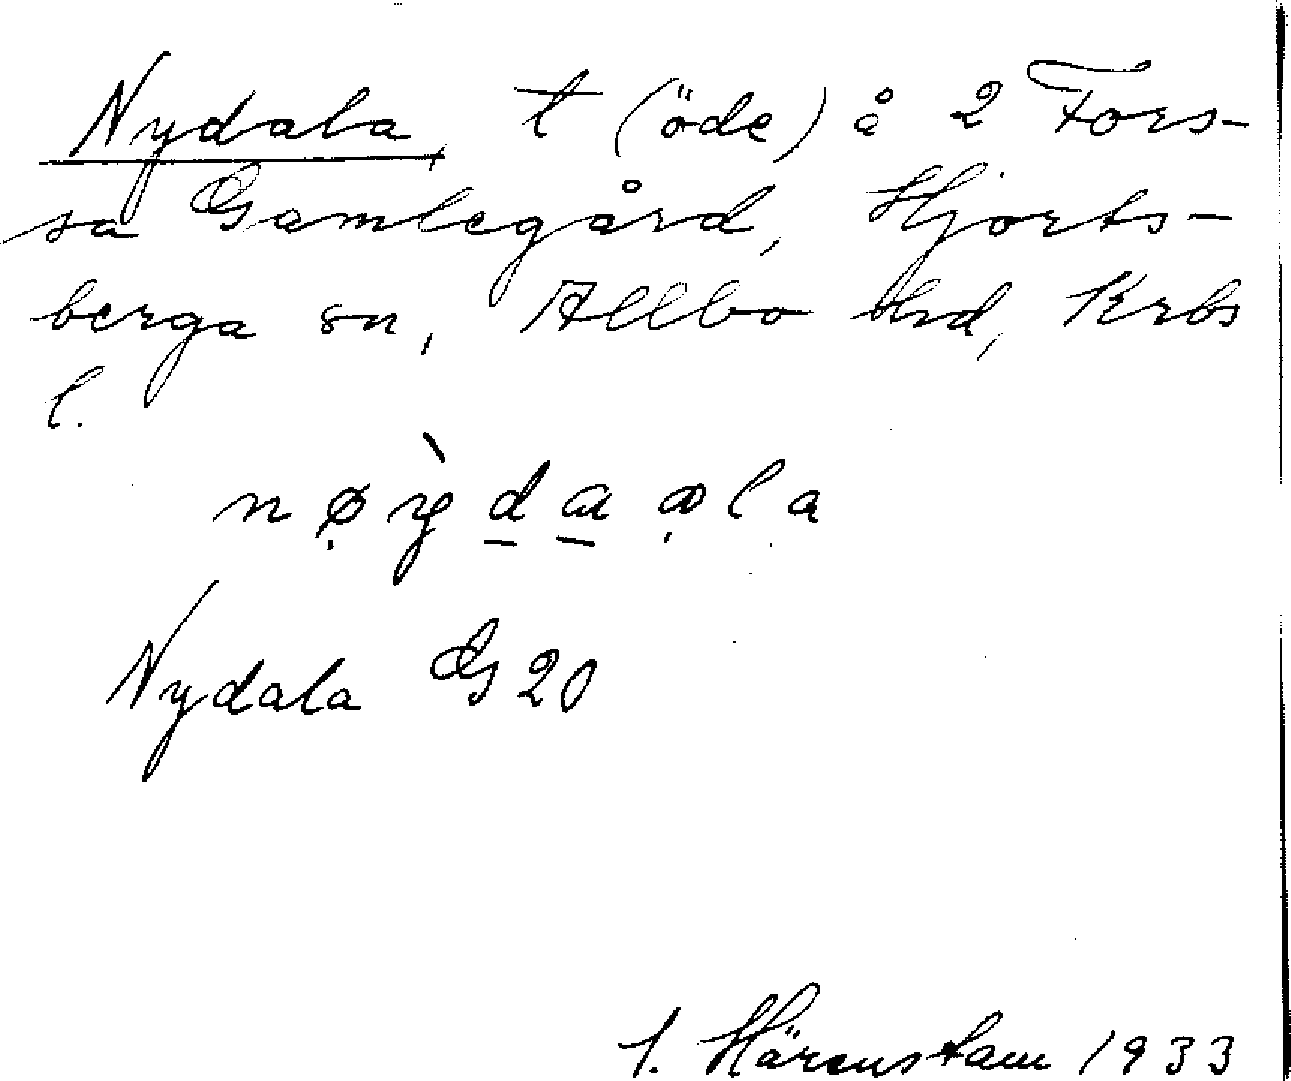 Nydala, t (öde) å 2 Fors-
sa Gamlegård, Hjorts-
berga sn, Allbo hd, Krbs
l.
Nydala G 20
I. Härenstam 1933